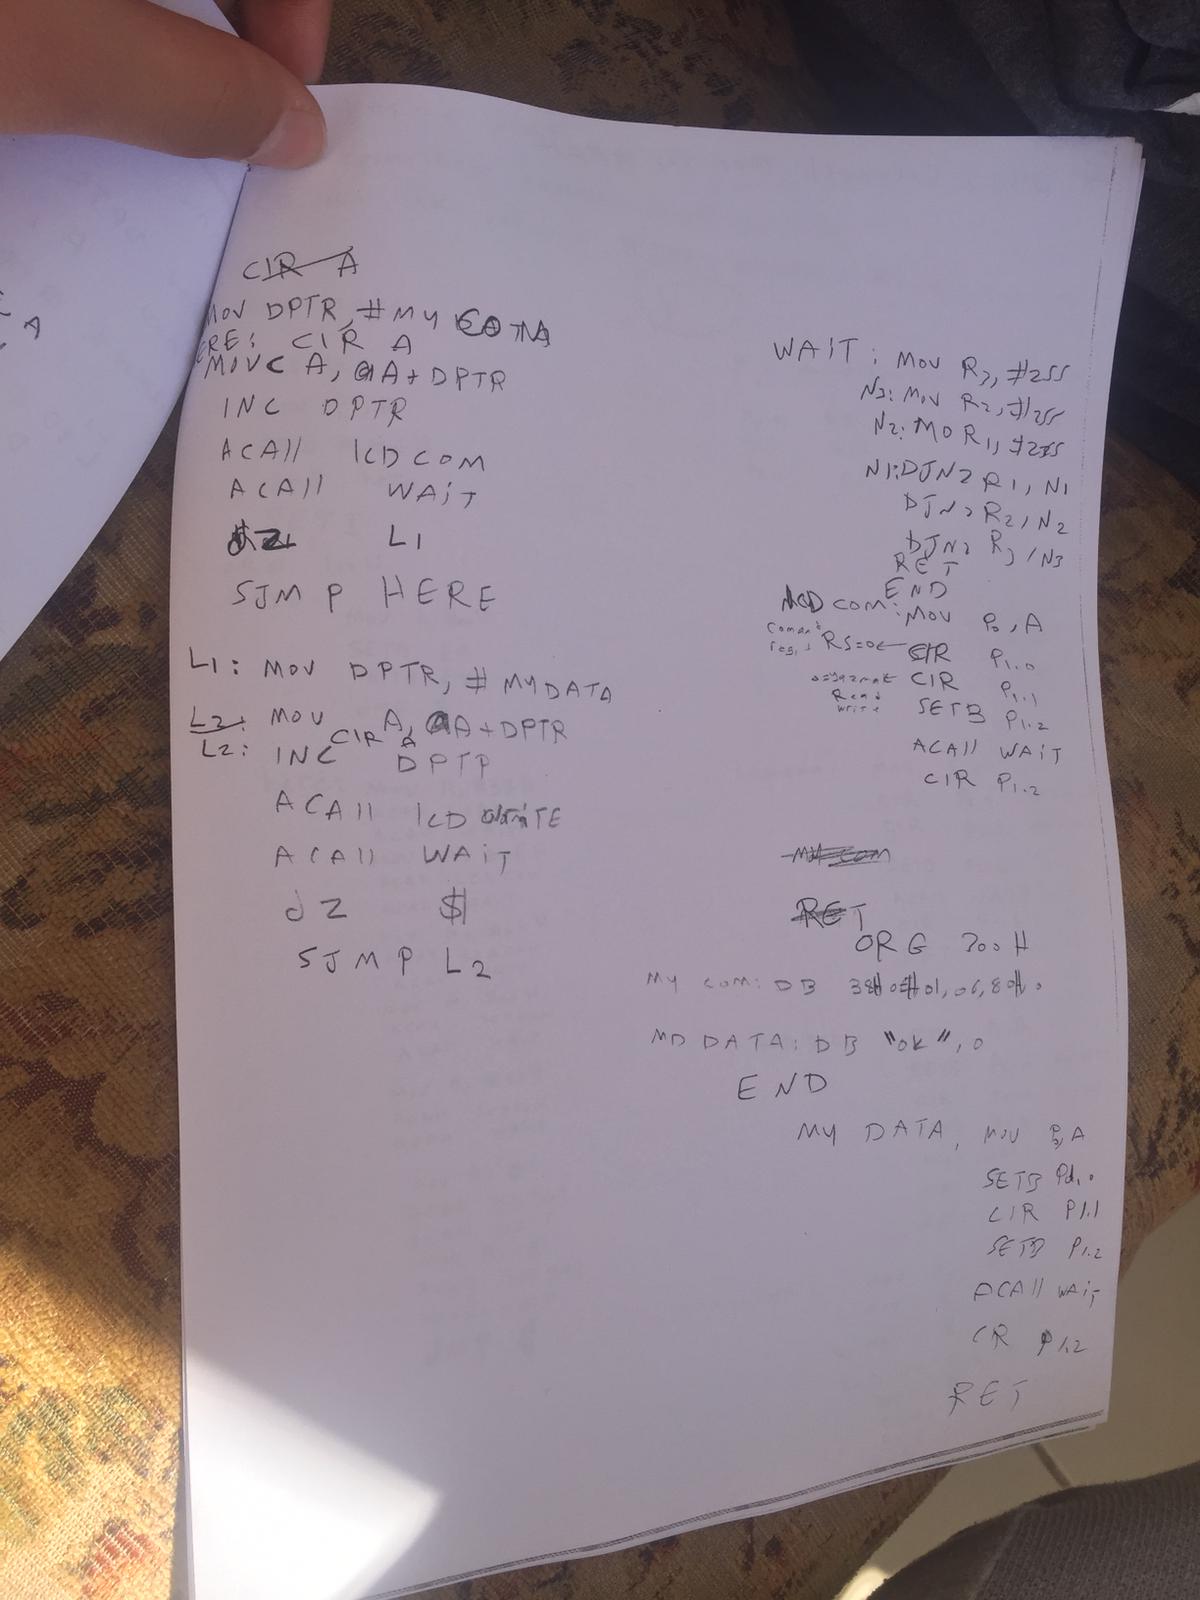 CIR A
MOV DPTR, #MY
ERE: CIR A
MOVC A, @A+DPTR
INC DPTR
ACAll lCDCOM
ACAll WAiT
JZ L1
SJMP HERE
L1: MOV DPTR, # MYDATA
L2: MOV A, @A+DPTR
CIR A
L2: INC DPTP
ACAll lCD
ACAll WAiT
JZ $
SJMP L2
WAiT: MOV R3, #255
N3: MOV R2, #255
N2: MO R1, #255
N1: DJNZ R1, N1
DJNZ R2, N2
DJNZ R3, N3
RET
END
lCD com: MOV P0, A
RS=0 CIR P1.0
CIR P1.1
Read
write
SETB P1.2
ACAll WAiT
CIR P1.2
MY COM
RET
ORG 300H
MY COM: DB 38H 01, 06, 80H
MD DATA: DB "OK", 0
END
MY DATA, MOV A
SETB
CIR P1.1
SETB P1.2
ACAll WAiT
CR P1.2
RET